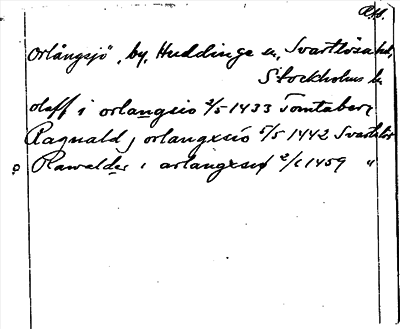 Orlångsjö, by, Huddinge sn, Svartlösa hd,
Stockholms l.
olaff i orlangsio 2/5 1433 Tomtaberg
Ragnald j orlangxsio 5/5 1442 Svartlös
Rawalder i orlangxsio 1459 "